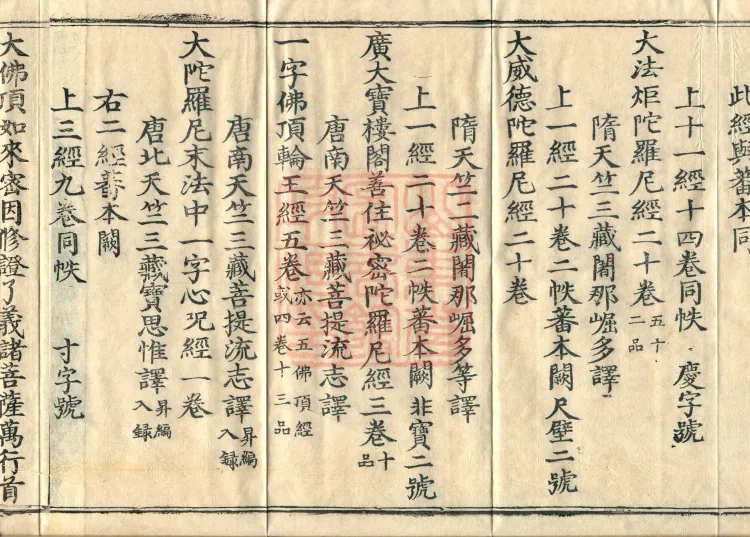 此經與蕃本同
上十一經十四卷同帙 慶字號
大法炬陀羅尼經二十卷五十二品
隋天竺三藏闍那崛多譯
上一經二十卷二帙蕃本闕尺璧二號
大威德陀羅尼經二十卷
隋天竺三藏闍那崛多等譯
上一經二十卷二帙蕃本闕非寶二號
廣大寶樓閣善住祕密陀羅尼經三卷十品
唐南天竺三藏菩提流志譯
一字佛頂輪王經五卷亦云五佛頂經或四卷十三品
唐南天竺三藏菩提流志譯昇編入録
大陀羅尼末法中一字心呪經一卷
唐北天竺三藏寶思惟譯昇編入録
右二經蕃本闕
上三經九卷同帙 寸字號
大佛頂如來密因修證了義諸菩薩萬行首